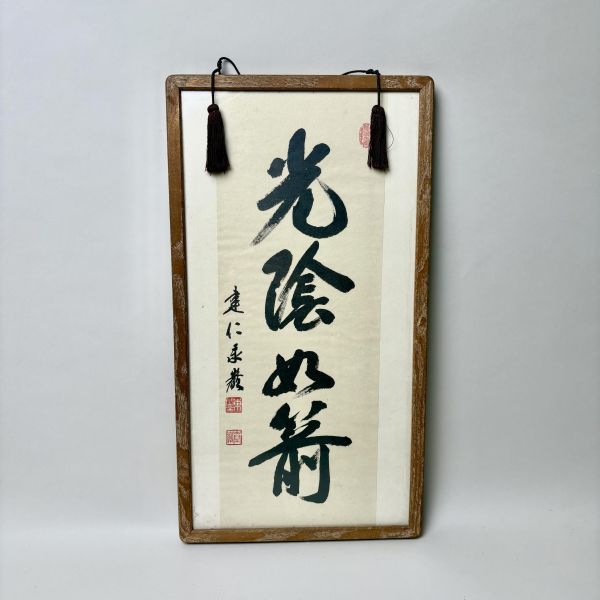 光陰如箭
建仁